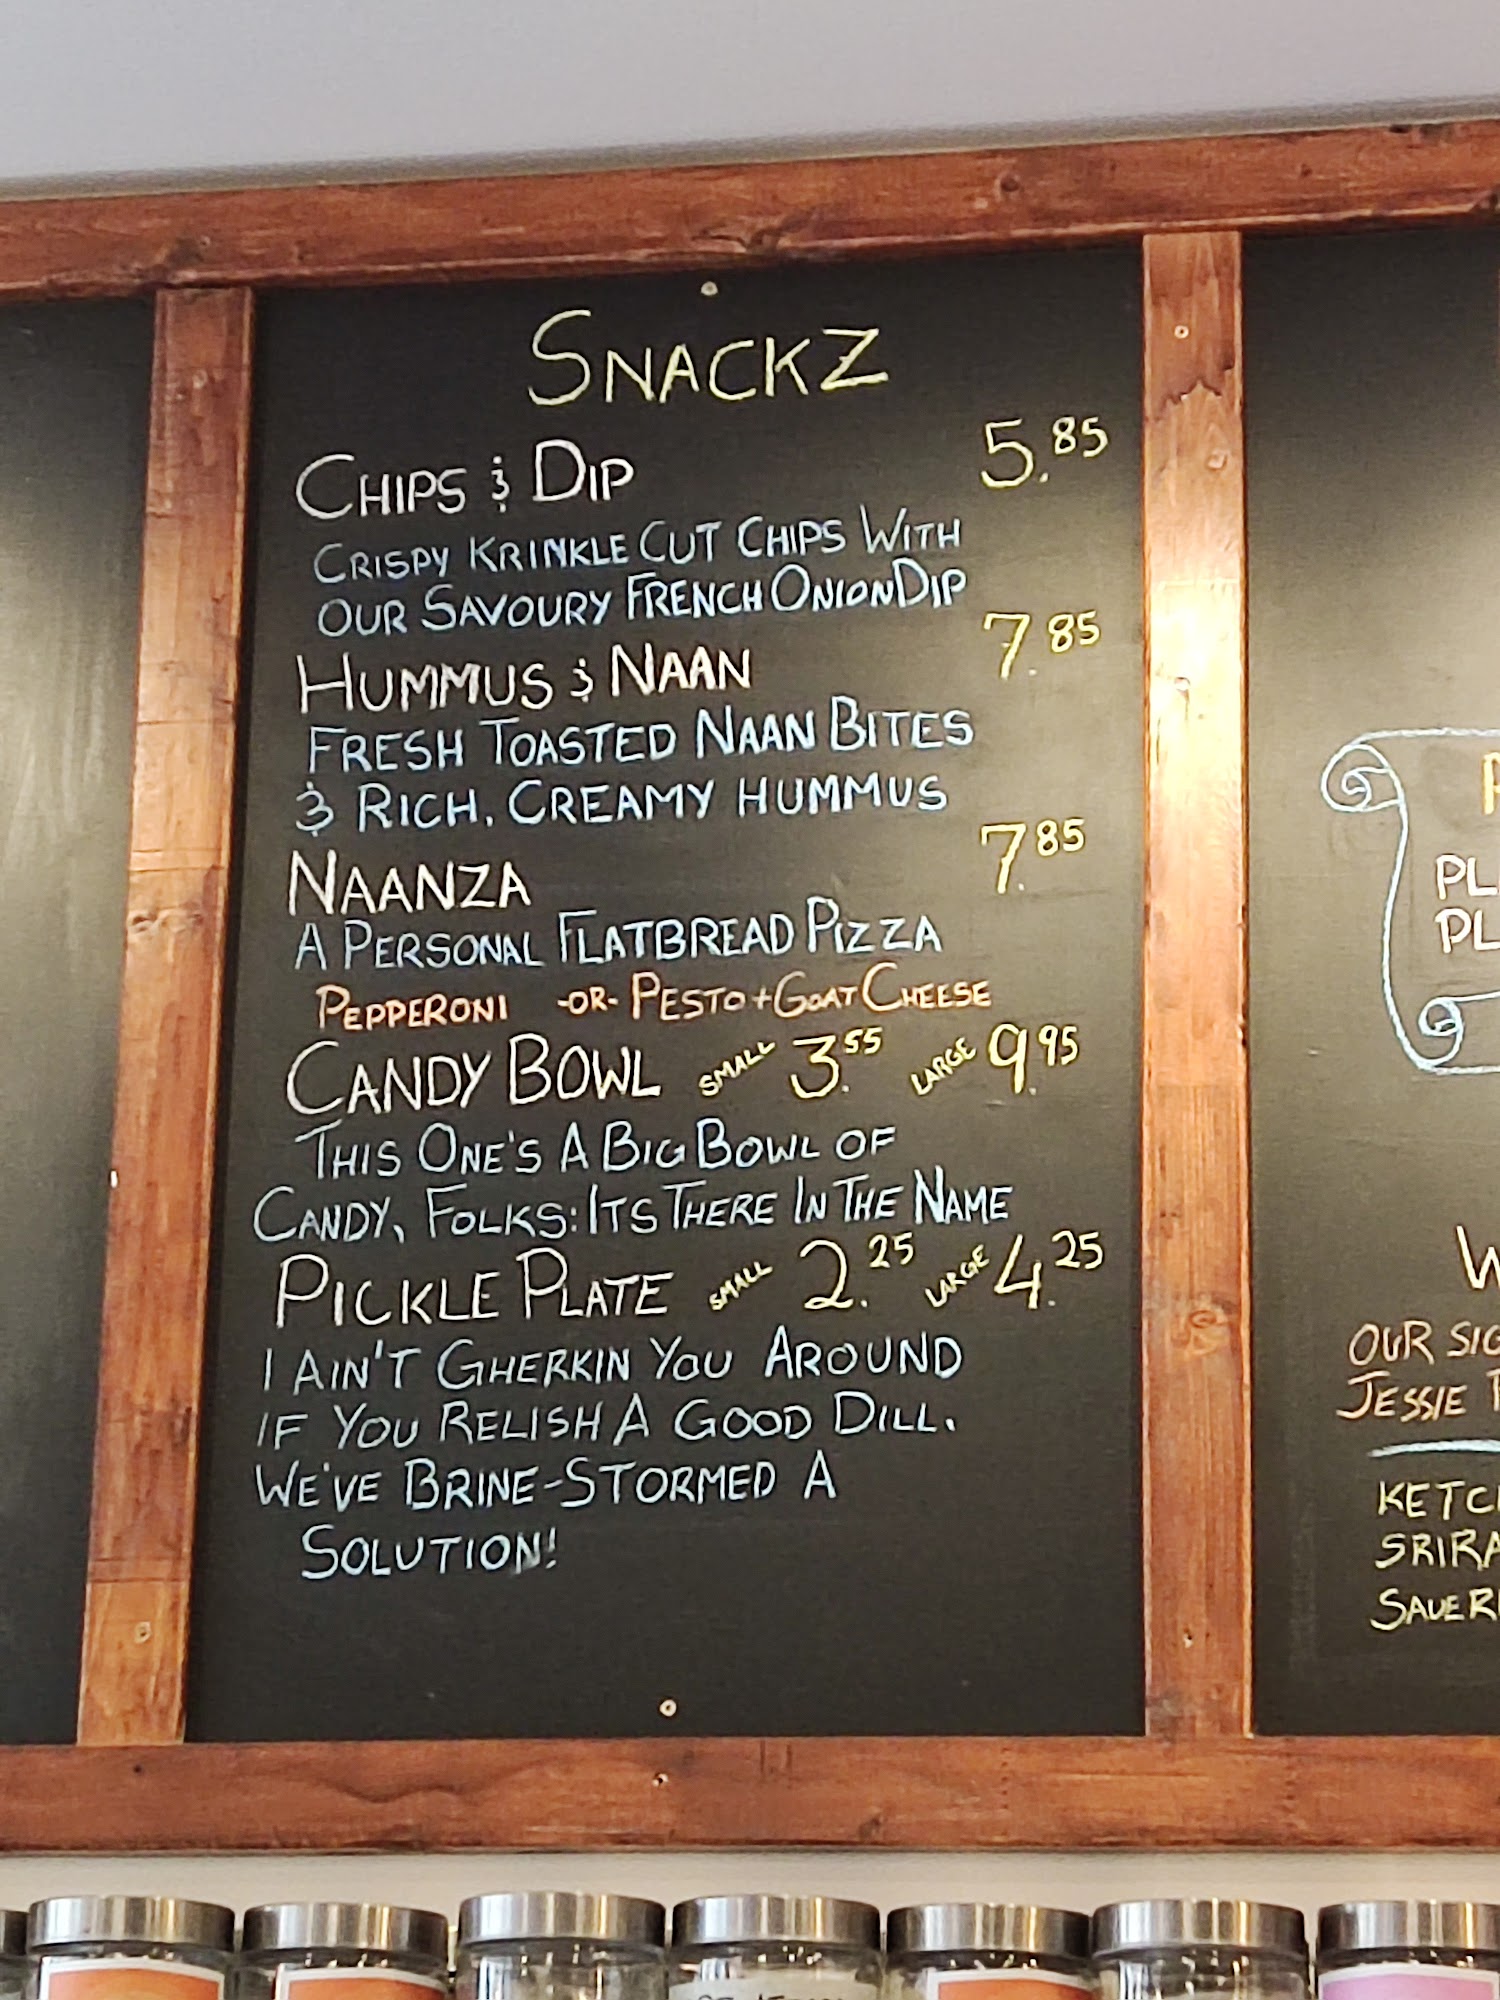 SNACKZ
CHIPS & DIP 5.85
CRISPY KRINKLE CUT CHIPS WITH
OUR SAVOURY FRENCH ONION DIP
HUMMUS & NAAN 7.85
FRESH TOASTED NAAN BITES
& RICH, CREAMY HUMMUS
NAANZA 7.85
A PERSONAL FLATBREAD PIZZA
PEPPERONI -OR- PESTO + GOAT CHEESE
CANDY BOWL SMALL 3.55 LARGE 9.95
THIS ONE'S A BIG BOWL OF
CANDY, FOLKS: ITS THERE IN THE NAME
PICKLE PLATE SMALL 2.25 LARGE 4.25
I AIN'T GHERKIN YOU AROUND
IF YOU RELISH A GOOD DILL.
WE'VE BRINE-STORMED A
SOLUTION!
OUR
JESSIE